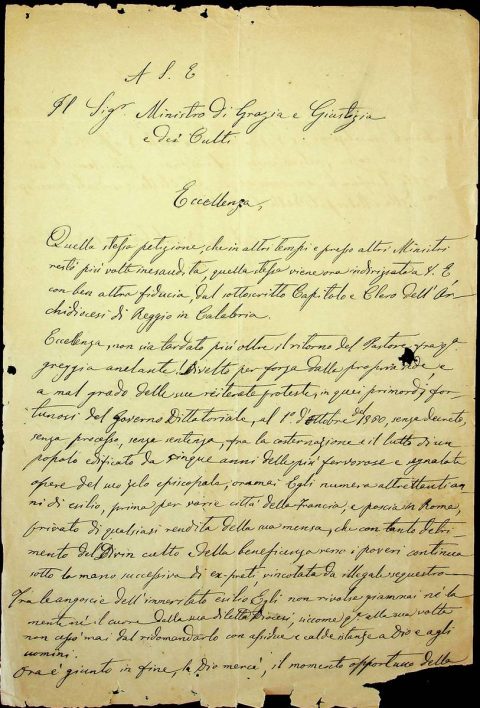 A S. E
Il Sigr. Ministro di Grazia e Giustizia
e dei Culti
Eccellenza,
Quella stessa petizione, che in altri tempi e presso altri Ministri
restò più volte inesaudita, quella stessa viene ora indirizzata a S. E
con ben altra fiducia, dal sottoscritto Capitolo e Clero dell'Ar
chidiocesi di Reggio in Calabria.
Eccellenza, non sia tardato più oltre il ritorno del Pastore fra 'l
gregge anelante. Divelto per forza dalla propria sede e
a mal grado delle sue reiterate proteste, in quei primordi for
tunosi del Governo Dittatoriale, al 1º d'Ottobre del 1860, senza decreto,
senza processo, senza sentenza, fra la costernazione e il lutto di un
popolo edificato da cinque anni delle più fervorose e segnalate
opere del suo zelo episcopale, oramai Egli numera altrettanti an
ni di esilio, prima per varie città della Francia, e poscia in Roma,
privato di qualsiasi rendita della sua mensa, che con tanto detri
mento del Divin culto e della beneficenza verso i poveri continua
sotto la mano successiva di ex-frati, vincolata da illegale sequestro
Tra le angoscie dell'immeritato esilio Egli non rivolse giammai nè la
mente nè il cuore dalla sua diletta Diocesi, siccome qta alla sua volta
non cessò mai dal ridomandarlo con assidue e calde istanze a Dio e agli
uomini.
Ora è giunto in fine, la Dio mercè, il momento opportuno della